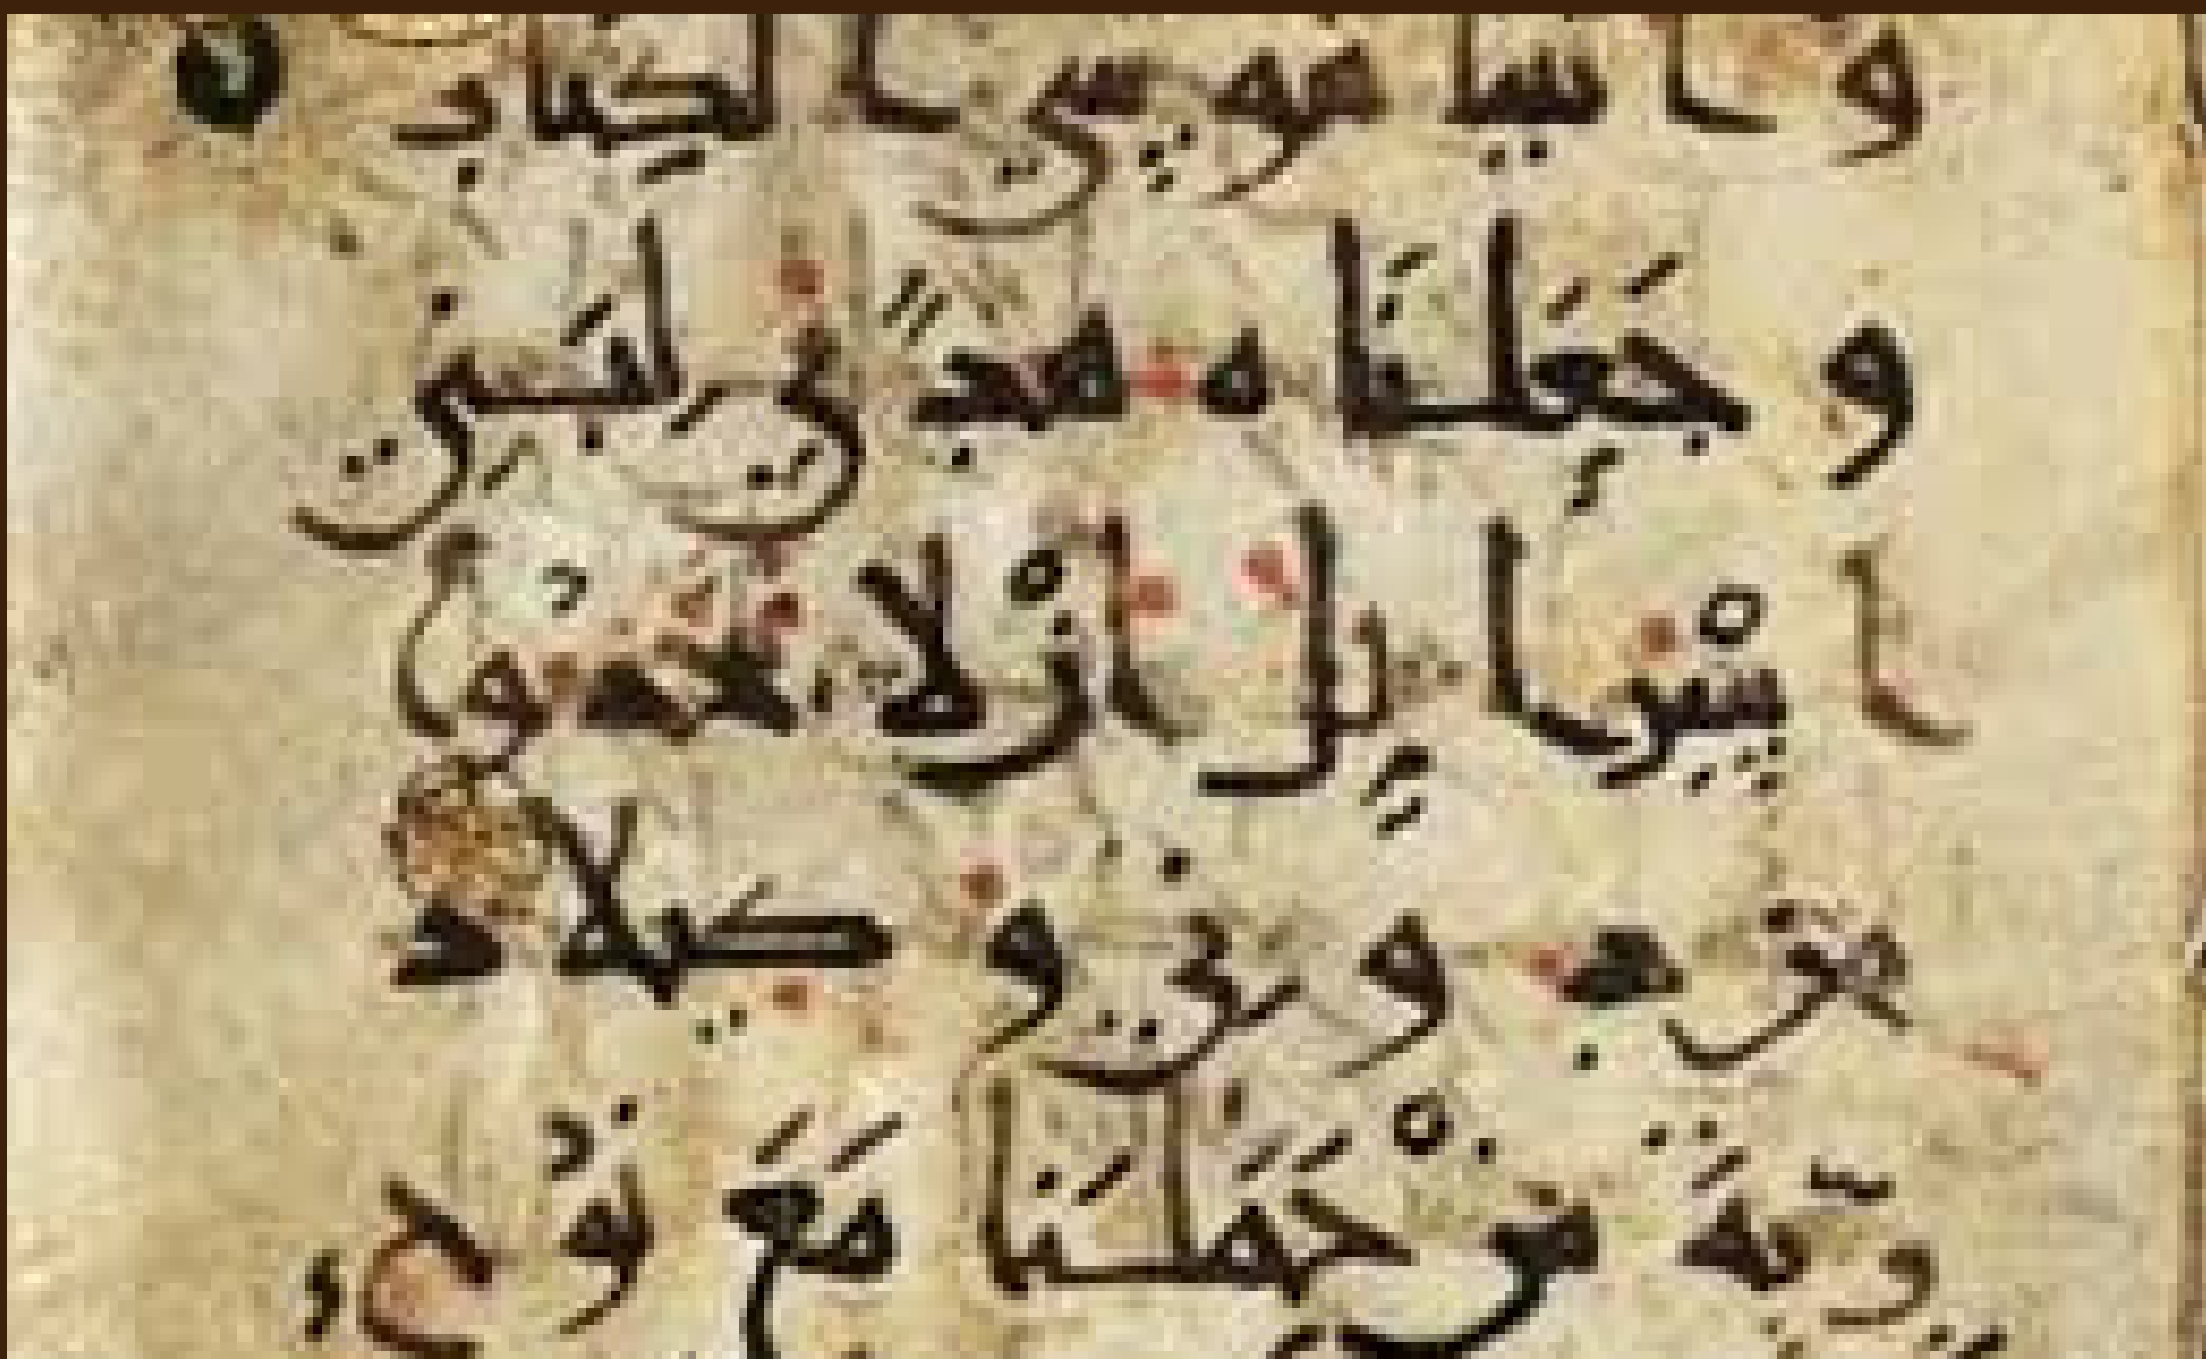 واتينا موسى الكتاب
وجعلناه هدى لبني
اسرايل الا تتخذوا
من دوني وكيلا ذ
رية من حملنا مع نوح